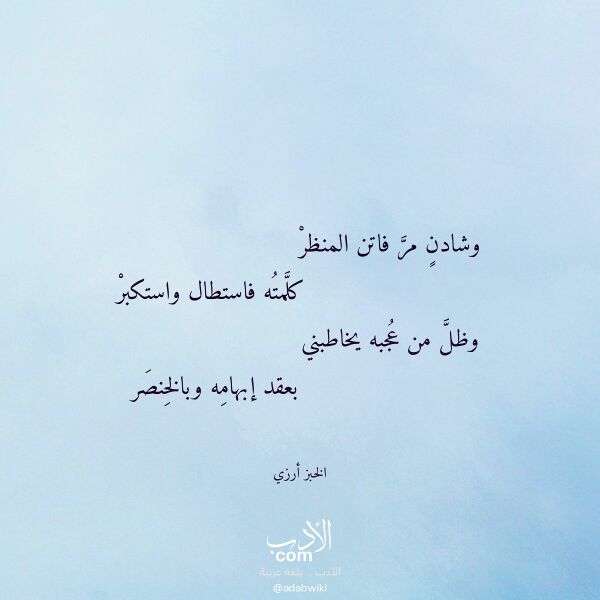 وشادنٍ مرَّ فاتن المنظرْ
كلَّمتُه فاستطال واستكبرْ
وظلَّ من عُجبه يخاطبني
بعقد إبهامِه وبالخِنصَر
الخبز أرزي
الأدب
com
الأدب .. بلغة عربية
@adabwiki